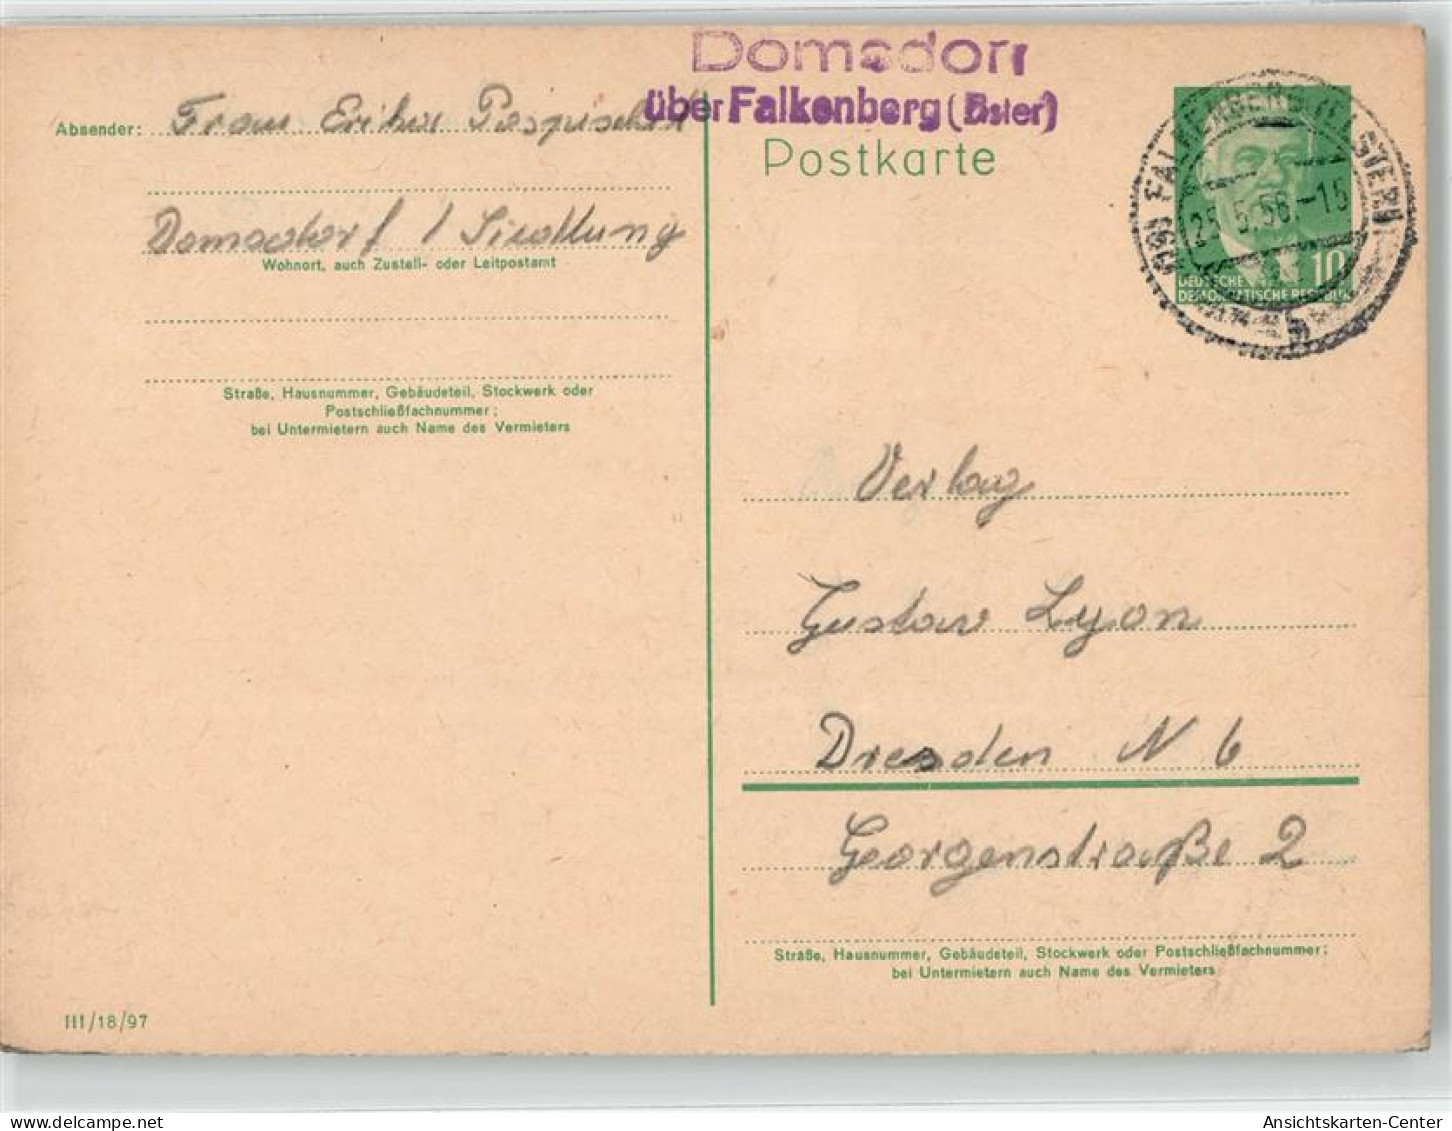 Domsdorf
über Falkenberg (Elster)
Postkarte
Absender: Frau Erika
Domsdorf / Siedlung
Wohnort, auch Zustell- oder Leitpostamt
Straße, Hausnummer, Gebäudeteil, Stockwerk oder
Postschließfachnummer;
bei Untermietern auch Name des Vermieters
III/18/97
FALKENBERG (ELSTER)
25.5.56.-15
b
10
DEUTSCHE
DEMOKRATISCHE REPUBLIK
Verlag
Gustav Lyon
Dresden N 6
Gorgenstraße 2
Straße, Hausnummer, Gebäudeteil, Stockwerk oder Postschließfachnummer;
bei Untermietern auch Name des Vermieters
Ansichtskarten-Center
oldthing.de